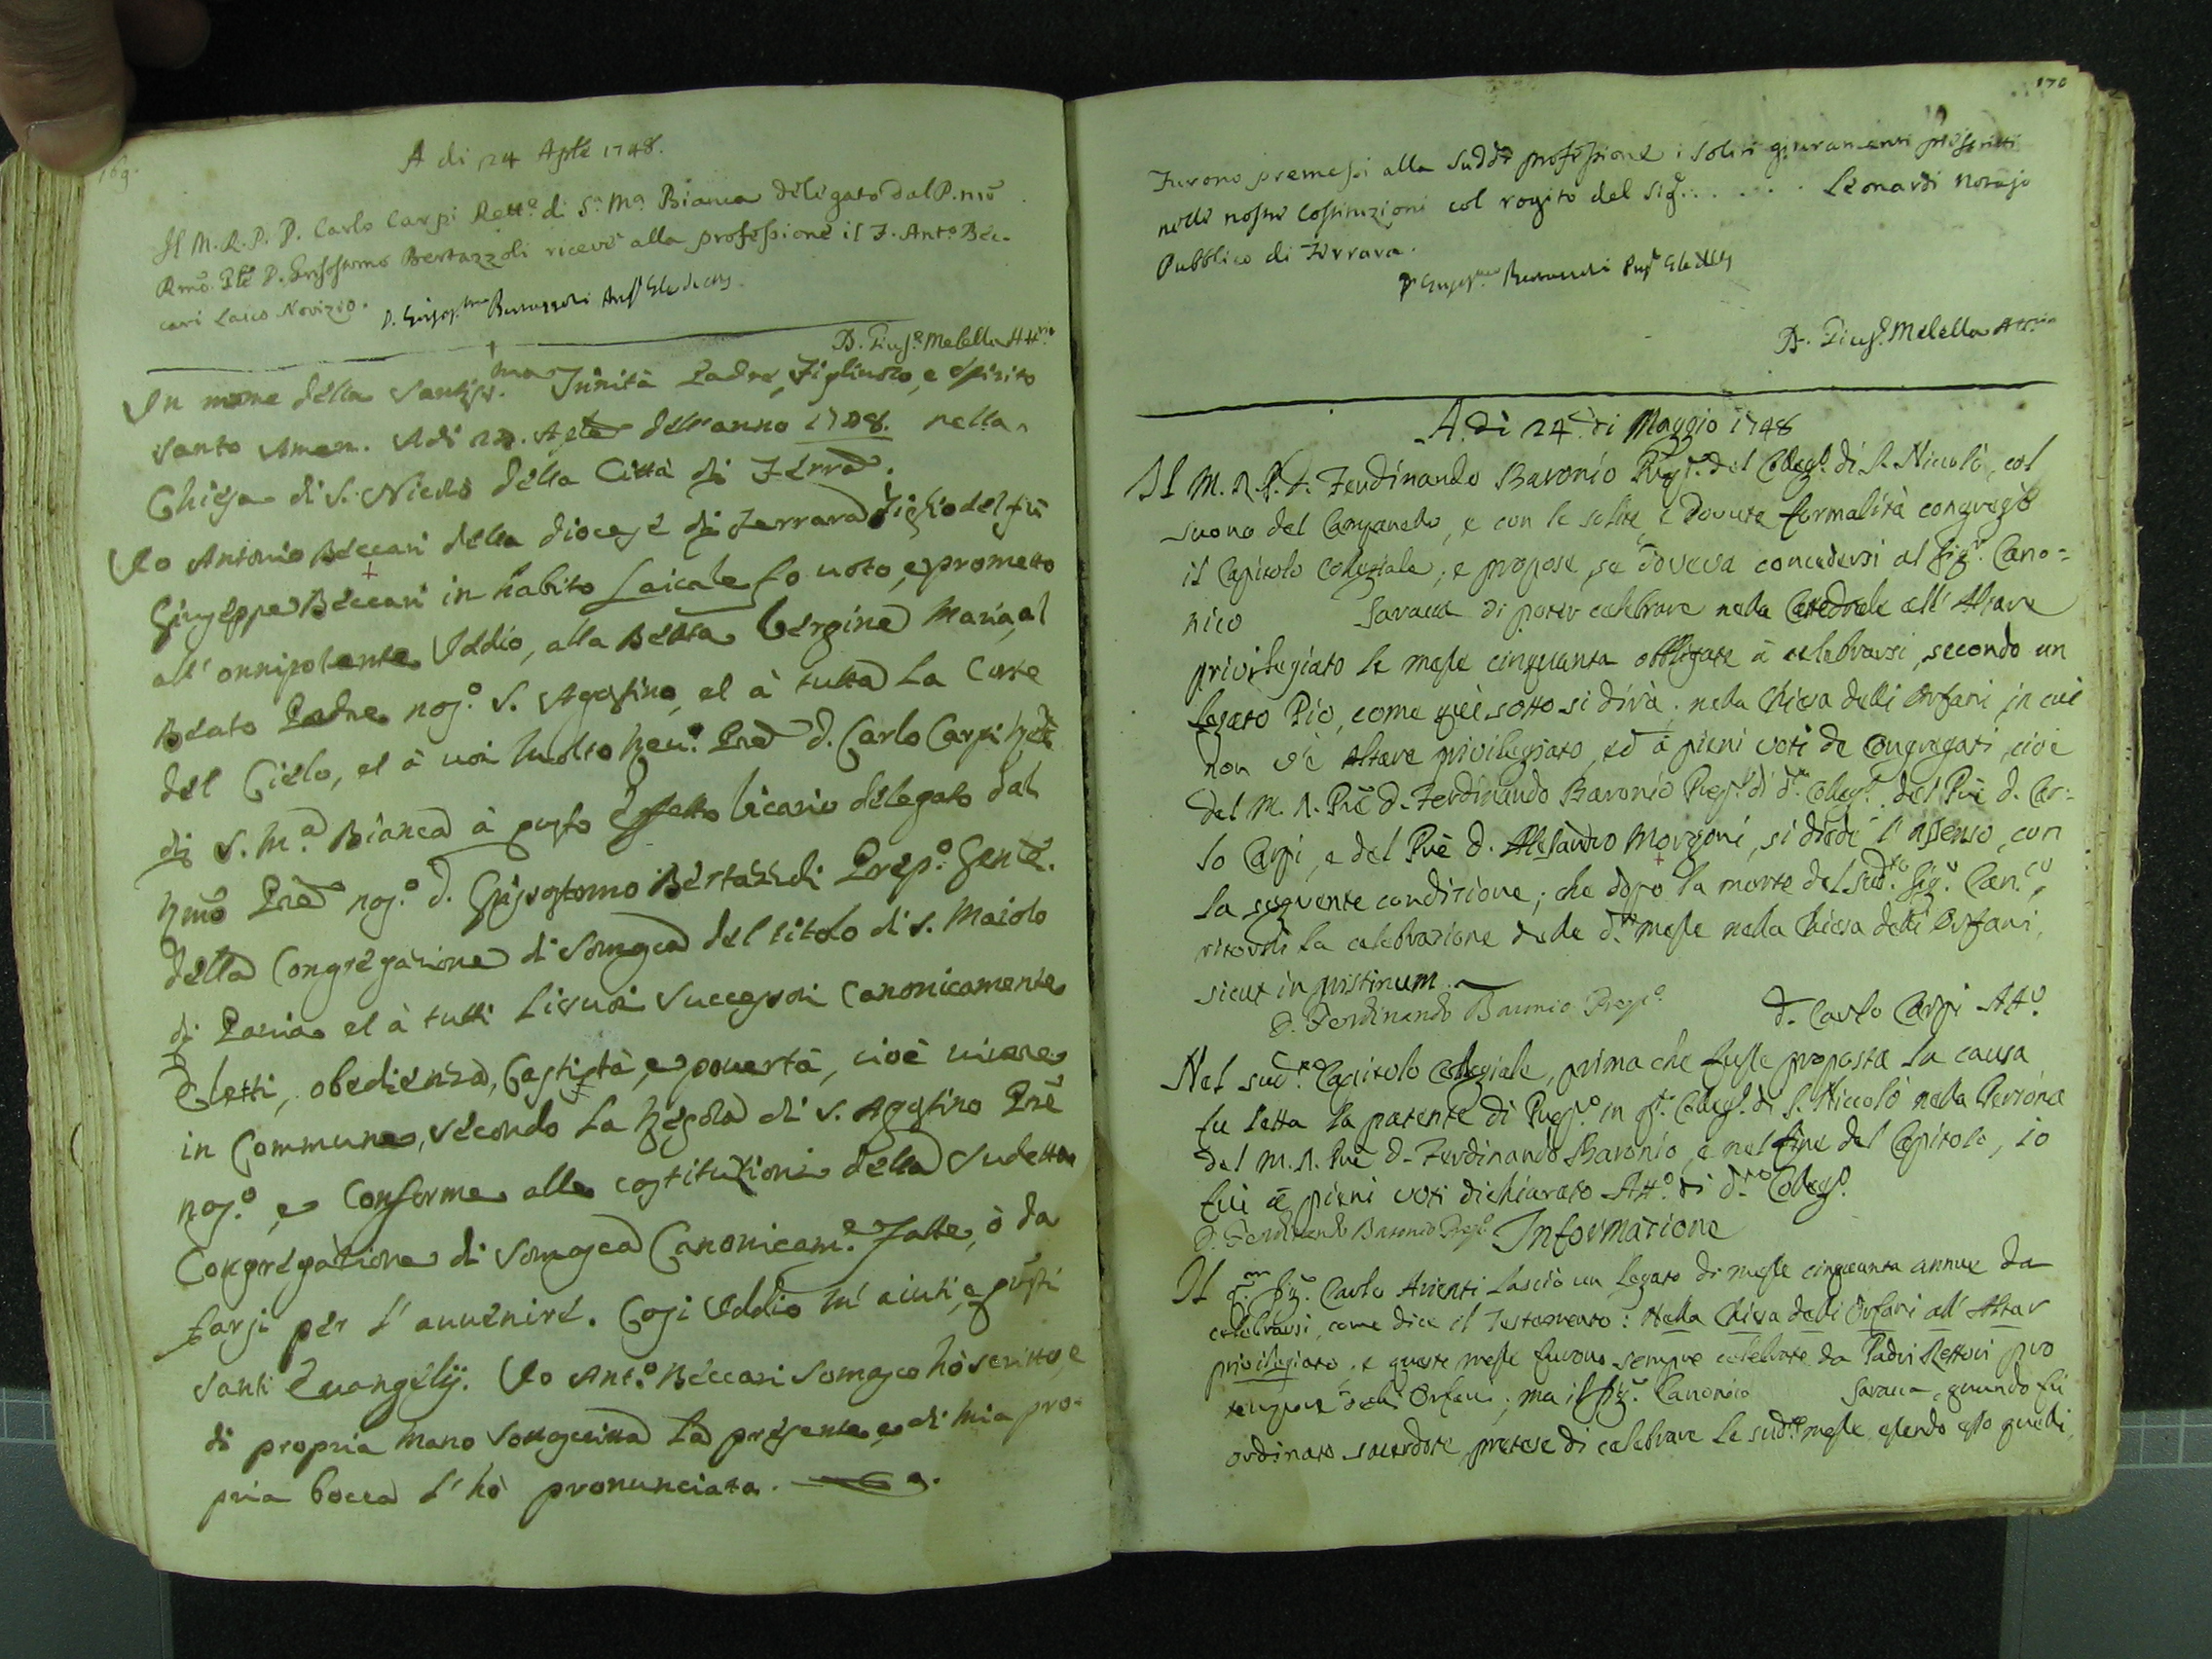 169.
A di 24 Aple 1748.
Il M. R. P. D. Carlo Carpi Rett.º di S.ª M.ª Bianca delegato dal P. nrõ
Rmõ. Ple D. Grisostomo Bertazzoli ricevè alla professione il F. Ant.º Bec-
cari Laico Novizio.
D. Giuse.e Melella Att.rio
In nome della Santiss.ma Trinità Padre, Figliuolo, e Spirito
Santo Amen. Adi 24. Aple dell'anno 1748. nella
Chiesa di S. Nicolò della Città di Ferrã.
Io Antonio Beccari della diocese di Ferrara figlio del fù
Giuseppe Beccari in habito Laicale fo voto, e prometto
all'onnipotente Iddio, alla Beata Vergine Maria, al
Beato Padre nos.º S. Agostino, et à tutta la Corte
del Cielo, et à voi Molto Reu.º Prẽ D. Carlo Carpi Rett.
di S. M.ª Bianca à questo effetto Vicario delegato dal
Rmõ Prẽ nos.º D. Grisostomo Bertazzoli Prep.º Genle.
della Congregazione di Somasca del titolo di S. Maiolo
di Pavia et à tutti li suoi Successori Canonicamente
Eletti, obedienza, Castità, e povertà, cioè vivere
in Commune, secondo la Regola di S. Agostino Prẽ
nos.º, e Conforme alle costituzioni della Sudetta
Congregazione di Somasca Canonicam.e Fatte, ò da
farsi per l'auvenire. Cosi Iddio m'aiuti, e questi
santi Evangelij. Io Ant.º Beccari Somasco hò scritto, e
di propria mano sottoscritta la presente, e di mia pro-
pria bocca l'hò pronunciata.
170
Furono premessi alla sudd.ª professione i soliti giuramenti prescritti
nelle nostre Costituzioni col rogito del Sig. . . . . . Leonardi Notajo
Pubblico di Ferrara.
D. Giuse.e Melella Att.rio
A. dì 24. di Maggio 1748
Il M. R. P. D. Ferdinando Baronio Prep.º del Colleg.º di S. Niccolò, col
suono del Campanello, e con le solite, e dovute formalità congregò
il Capitolo Collegiale; e propose, se doveva concedersi al Sig.r Cano-
nico Savaua di poter celebrare nella Catedrale all'Altare
privilegiato le messe cinquanta obbligate à celebrarsi, secondo un
legato Pio, come quì sotto si dirà, nella Chiesa delli Orfani, in cui
non v'è Altare privilegiato, ed à pieni voti de Congregati, cioè
del M. R. Prẽ D. Ferdinando Baronio Prep.º di d.º Colleg.º, del Prẽ D. Car-
lo Carpi, e del Prẽ D. Alesandro Morzoni, si diede l'assenso, con
la seguente condizione; che dopo la morte del sud.to Sig.r Can.co,
ritorni la celebrazione delle d.te messe nella Chiesa delli Orfani,
sicut in pristinum.
D. Ferdinando Baronio Prep.º
D. Carlo Carpi Att.º
Nel sud.to Capitolo Collegiale, prima che fusse proposta la causa
fu letta la patente di Prep.º in q.to Colleg.º di S. Niccolò nella Persona
del M. R. Prẽ D. Ferdinando Baronio, e nel fine del Capitolo, io
fui à pieni voti dichiarato Att.º di d.to Colleg.º
D. Ferdinando Baronio Prep.º Informazione
Il Sig.r Carlo Arienti lasciò un legato di messe cinquanta annue da
celebrarsi, come dice il Testamento: Nella Chiesa delli Orfani all'Altar
privilegiato, e queste messe furono sempre celebrate da Padri Rettori pro
tempore delli Orfani; ma il Sig.r Canonico Savaua, quando fù
ordinato sacerdote, pretese di celebrare le sud.te messe, essendo esso quelli,